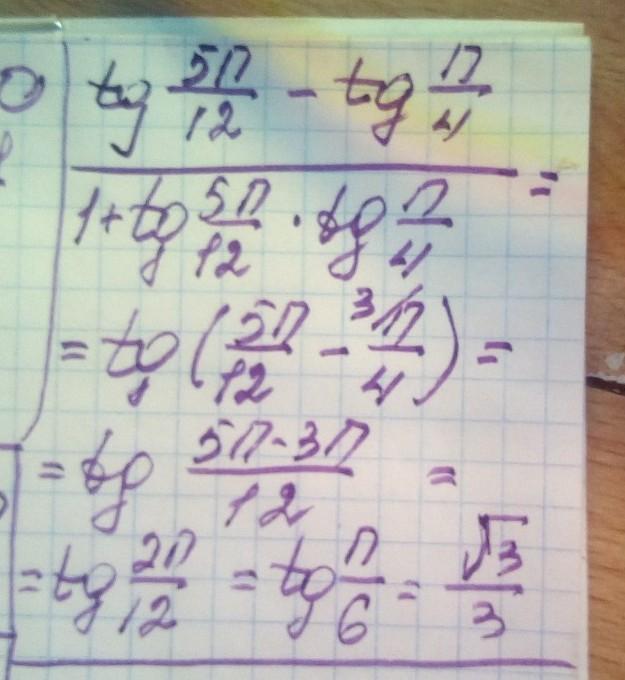 tg 5π/12 - tg π/4
=
1 + tg 5π/12 · tg π/4
= tg (5π/12 - ³⁄π/4) =
= tg 5π-3π/12 =
= tg 2π/12 = tg π/6 = √3/3